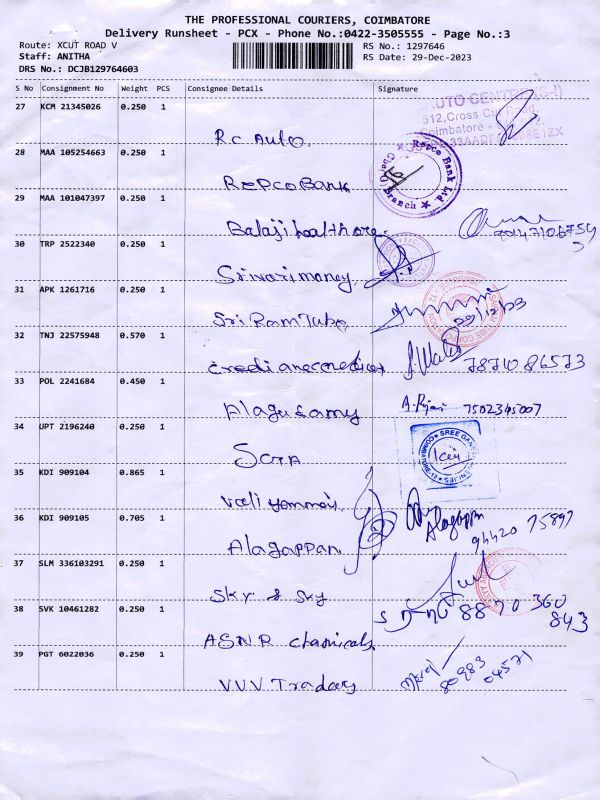 THE PROFESSIONAL COURIERS, COIMBATORE
Delivery Runsheet - PCX - Phone No.:0422-3505555 - Page No.:3
Route: XCUT ROAD V
RS No.: 1297646
Staff: ANITHA
RS Date: 29-Dec-2023
DRS No.: DCJB129764603
S No Consignment No Weight PCS Consignee Details Signature
27 KCM 21345026 0.250 1
R.c Auto.
AUTO CENTRE
512,Cross Cut Road,
Coimbatore
28 MAA 105254663 0.250 1
REPCO BANK
Repco Bank
Branch
29 MAA 101047397 0.250 1
Balaji healthcare.
30 TRP 2522340 0.250 1
Srivari money
31 APK 1261716 0.250 1
Sri Ram Tube
29/12/23
32 TNJ 22575948 0.570 1
7871086573
33 POL 2241684 0.450 1
Alagusamy
7502345007
34 UPT 2196240 0.250 1
SREE
35 KDI 909104 0.865 1
Valliyammai
36 KDI 909105 0.705 1
Alagappan
Alagappn
94420 75897
37 SLM 336103291 0.250 1
Sky & Sky
38 SVK 10461282 0.250 1
ASNR chemicals
8870 360
843
39 PGT 6022036 0.250 1
V.V.V Traders
80983
04571